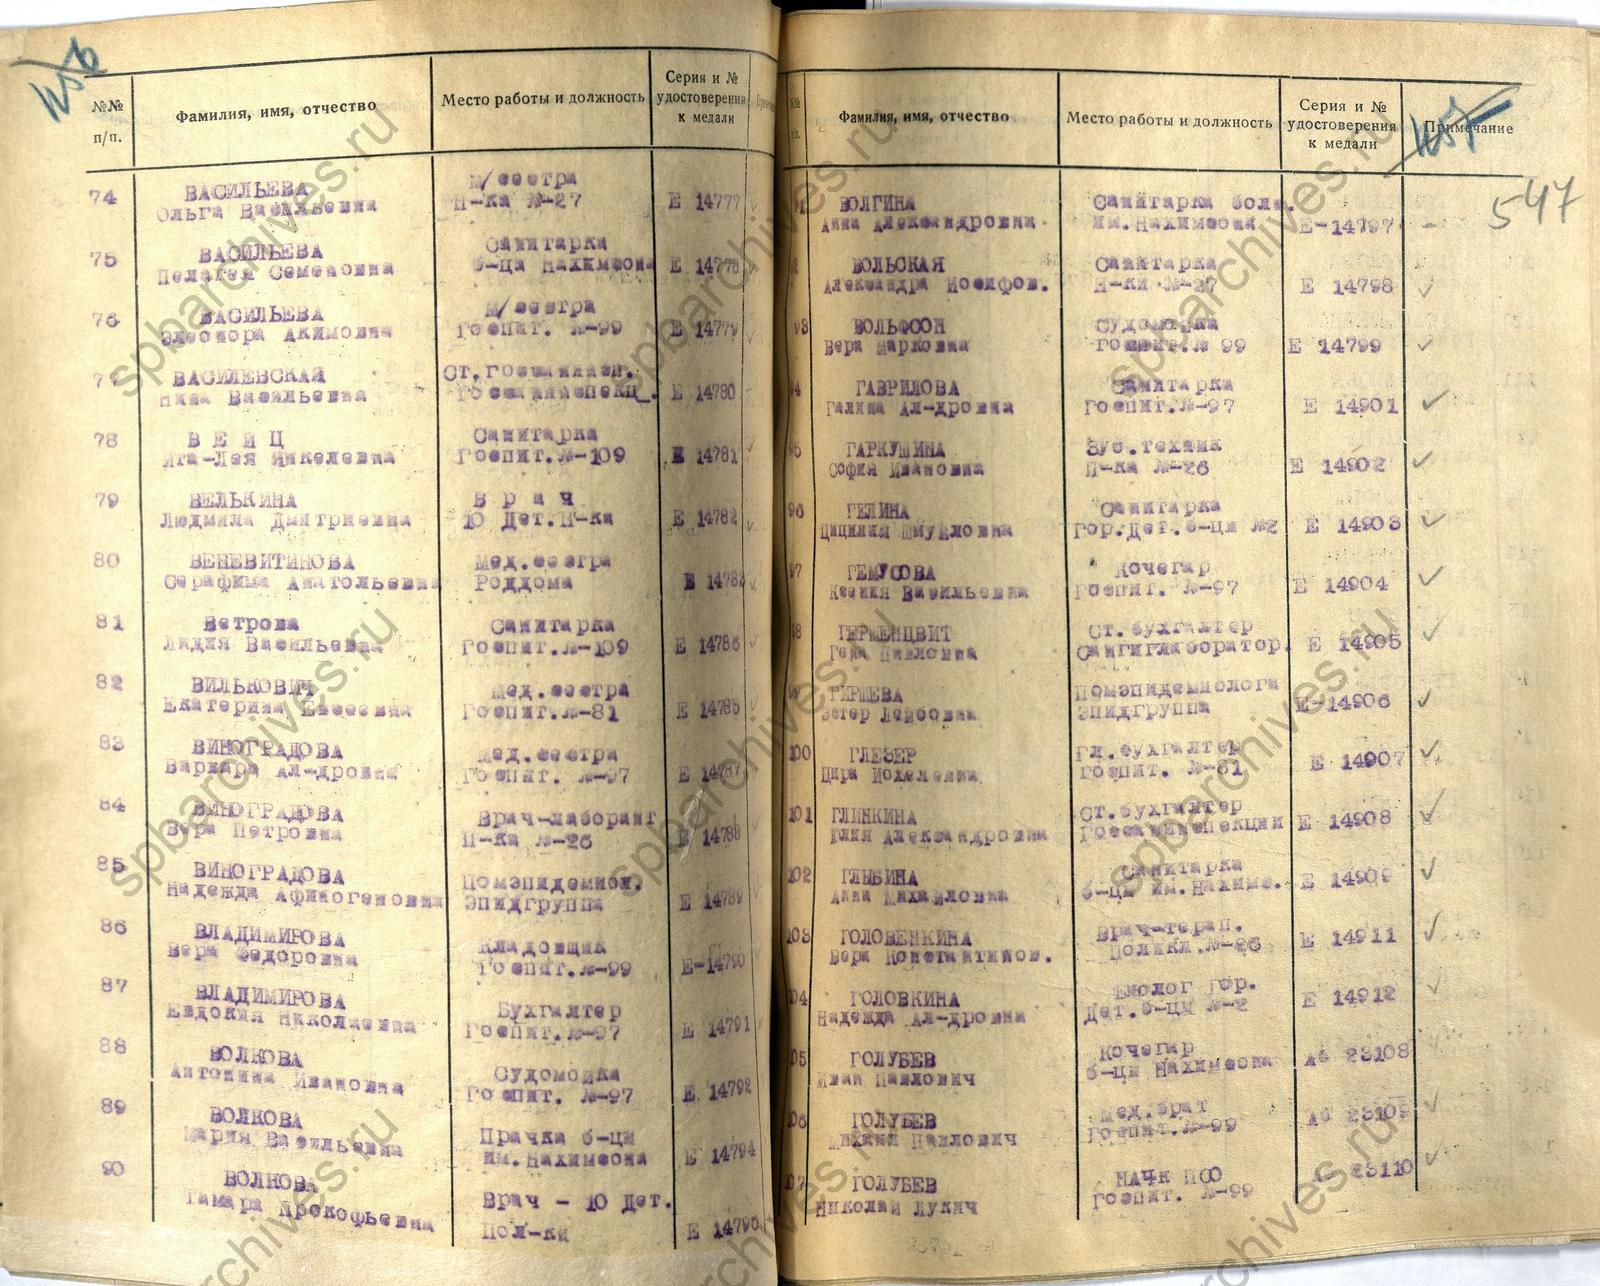 №№
п/п.
Фамилия, имя, отчество
Место работы и должность
Серия и №
удостоверения
к медали
74
ВАСИЛЬЕВА
Ольга Васильевна
М/сестра
П-ка №-27
Е 14777
75
ВАСИЛЬЕВА
Пелагея Семеновна
Санитарка
б-цы Нахимсона
Е 14778
76
ВАСИЛЬЕВА
Элеонора Акимовна
М/сестра
Госпит. №-99
Е 14779
77
ВАСИЛЕВСКАЯ
Нина Васильевна
Е 14780
78
В Е Й Ц
Ита-Лея
Санитарка
Госпит.№-109
Е 14781
79
ВЕЛЬКИНА
Людмила Дмитриевна
В р а ч
10 Дет.П-ка
Е 14782
80
ВЕНЕВИТИНОВА
Серафима Анатольевна
Мед.сестра
Роддома
Е 14783
81
Ветрова
Лидия Васильевна
Санитарка
Госпит.№-109
Е 14786
82
ВИЛЬКОВИЧ
Екатерина Евсеевна
Мед.сестра
Госпит.№-81
Е 14785
83
ВИНОГРАДОВА
Варвара Ал-дровна
Мед.сестра
Госпит. №-97
Е 14787
84
ВИНОГРАДОВА
Вера Петровна
Врач-лаборант
П-ка №-26
Е 14788
85
ВИНОГРАДОВА
Надежда Афиногеновна
Помэпидемиол.
Эпидгруппа
Е 14789
86
ВЛАДИМИРОВА
Вера Федоровна
Кладовщик
Госпит.№-99
Е-14790
87
ВЛАДИМИРОВА
Евдокия Николаевна
Бухгалтер
Госпит.№-97
Е 14791
88
ВОЛКОВА
Антонина Ивановна
Судомойка
Госпит. №-97
Е 14792
89
ВОЛКОВА
Мария Васильевна
Прачка б-цы
им.Нахимсона
Е 14794
90
ВОЛКОВА
Тамара Прокофьевна
Врач - 10 Дет.
Пол-ки
Е 14796
Фамилия, имя, отчество
Место работы и должность
Серия и №
удостоверения
к медали
Примечание
547
ВОЛГИНА
Анна Александровна
Санитарка болн.
им.Нахимсона
Е-14797
ВОЛЬСКАЯ
Александра Иосифов.
Санитарка
П-ки №-27
Е 14798
93
ВОЛЬФСОН
Вера Марковна
Судомойка
Госпит.№ 99
Е 14799
94
ГАВРИЛОВА
Галина Ал-дровна
Санитарка
Госпит.№-97
Е 14901
95
ГАРКУШИНА
София Ивановна
Зуб.техник
П-ка №-26
Е 14902
96
ГЕЛИНА
Цицилия Шмуйловна
Санитарка
Гор.Дет.б-цы №2
Е 14903
97
ГЕМУСОВА
Ксения Васильевна
Кочегар
Госпит. №-97
Е 14904
98
Павловна
Ст.бухгалтер
Е 14905
99
ГИРШЕВА
Эстер Лейбовна
Помэпидемиолога
Эпидгруппа
Е-14906
100
ГЛЕЗЕР
Гл.бухгалтер
Госпит. №-81
Е 14907
101
ГЛИНКИНА
Юлия Александровна
Ст.бухгалтер
Госсанинспекции
Е 14908
102
ГЛЫБИНА
Анна Михайловна
Санитарка
б-цы им.Нахимс.
Е 14909
103
ГОЛОВЕНКИНА
Вера Константинов.
Врач-терап.
Поликл.№-26
Е 14911
104
ГОЛОВКИНА
Надежда Ал-дровна
Биолог Гор.
Дет.б-цы №-2
Е 14912
105
ГОЛУБЕВ
Иван Павлович
Кочегар
б-цы Нахимсона
Аб 23108
106
ГОЛУБЕВ
Михаил Павлович
Мед.брат
Госпит.№-99
Аб 23109
107
ГОЛУБЕВ
Николай Лукич
НАЧК ПФО
Госпит. №-99
Аб 23110
spbarchives.ru